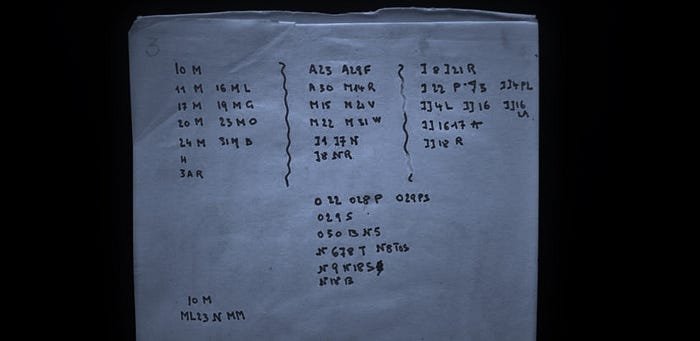 3
10 M
11 M 16 M L
17 M 19 M G
20 M 23 M O
24 M 31 M B
H
3 A R
A23 A29F
A 30 M14 R
M15 M21 V
M22 M31 W
J1 J7 N
J8 N R
J 8 J21 R
J 22 JJ4 PL
JJ4L JJ16 JJ16
JJ 16-17
JJ18 R
O 22 O28 P O29PS
O29 S
O30 B N5
N 678 T N8 TOS
N 9 N18 S
N18 B
10 M
ML23 N MM